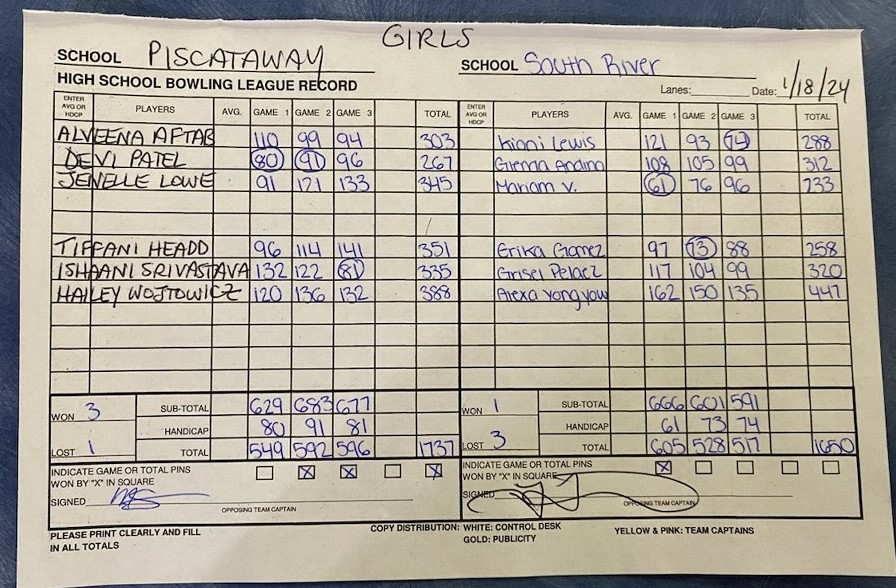 GIRLS
SCHOOL PISCATAWAY SCHOOL South River
HIGH SCHOOL BOWLING LEAGUE RECORD Lanes: Date: 1/18/24
ENTER AVG OR HDCP PLAYERS AVG. GAME 1 GAME 2 GAME 3 TOTAL ENTER AVG OR HDCP PLAYERS AVG. GAME 1 GAME 2 GAME 3 TOTAL
ALVEENA AFTAB 110 99 94 303 Kioni Lewis 121 93 74 288
DEVI PATEL 80 91 96 267 108 105 99 312
JENELLE LOWE 91 121 133 345 Mariam V. 61 76 96 233
TIFFANI HEADD 96 114 141 351 Erika Gomez 97 73 88 258
ISHAANI SRIVASTAVA 132 122 81 335 Grisel Pelaez 117 104 99 320
HAILEY WOJTOWICZ 120 136 132 388 Alexa Yongyow 162 150 135 447
WON 3 SUB-TOTAL 629 683 677 WON 1 SUB-TOTAL 666 601 591
HANDICAP 80 91 81 HANDICAP 61 73 74
LOST 1 TOTAL 549 592 596 1737 LOST 3 TOTAL 605 528 517 1650
INDICATE GAME OR TOTAL PINS X X X INDICATE GAME OR TOTAL PINS X
WON BY "X" IN SQUARE WON BY "X" IN SQUARE
SIGNED SIGNED
OPPOSING TEAM CAPTAIN OPPOSING TEAM CAPTAIN
PLEASE PRINT CLEARLY AND FILL COPY DISTRIBUTION: WHITE: CONTROL DESK YELLOW & PINK: TEAM CAPTAINS
IN ALL TOTALS GOLD: PUBLICITY